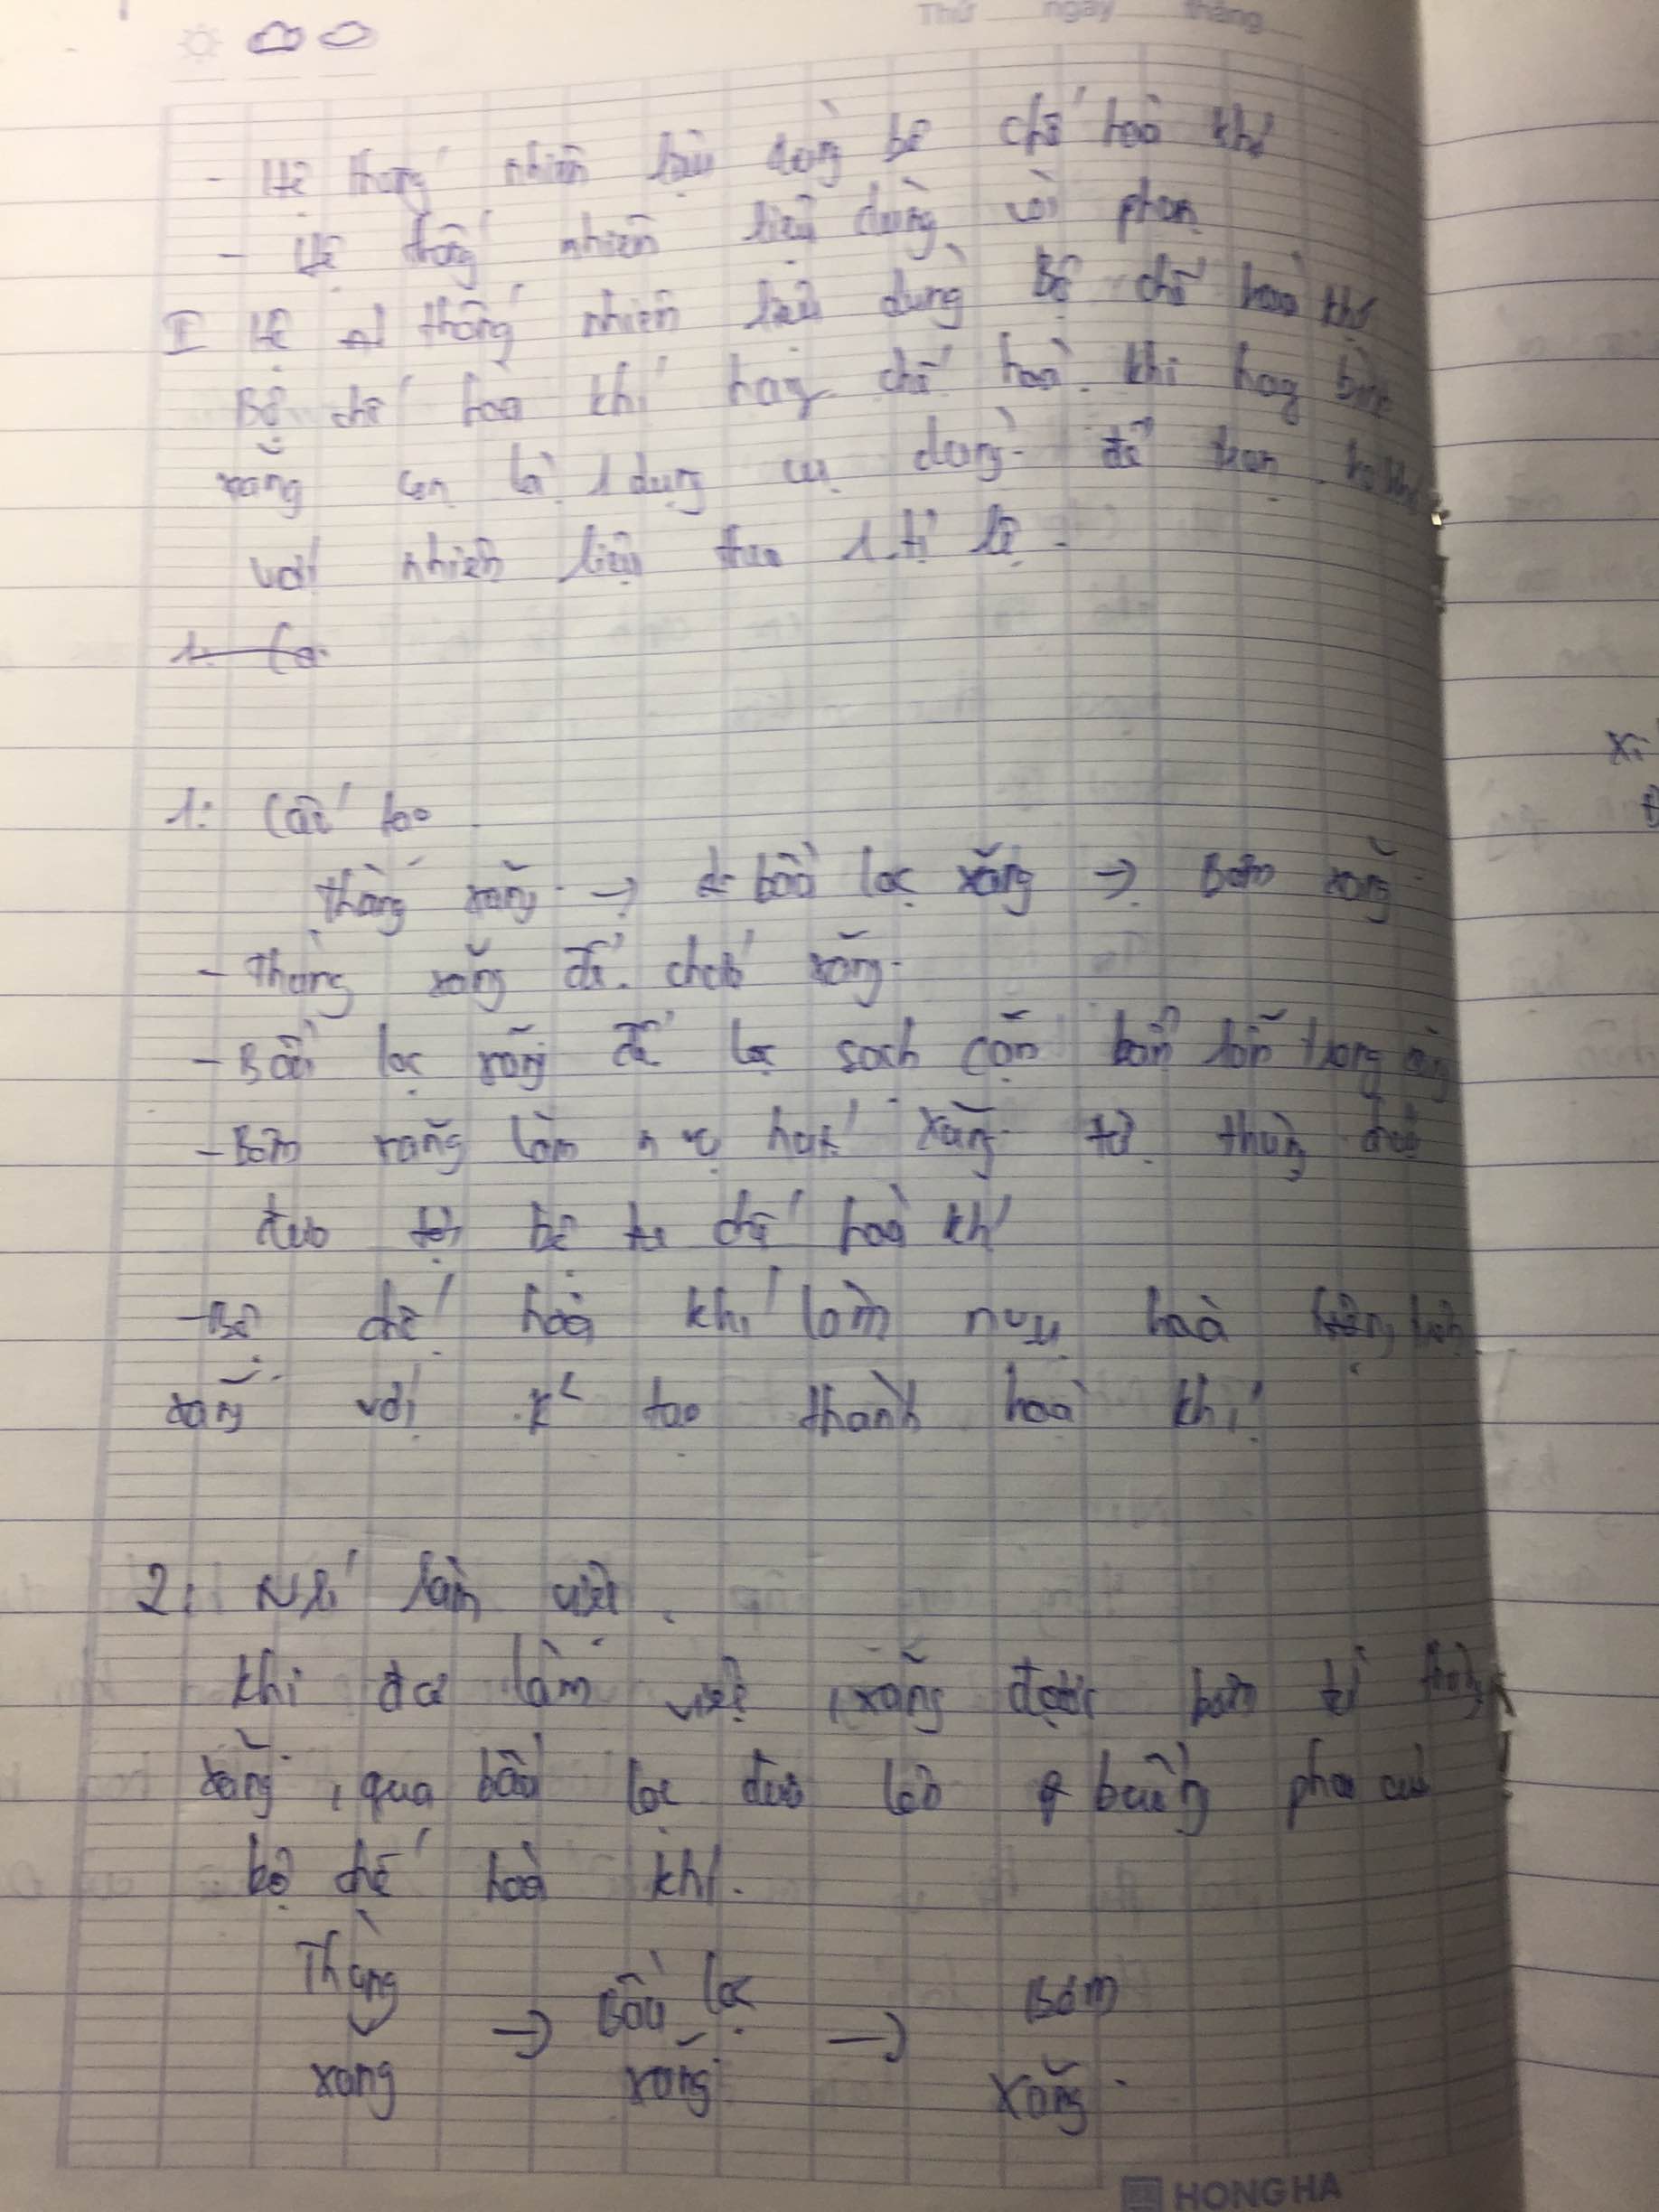 Thứ ngày tháng
- Hệ thống nhiên liệu dùng bộ chế hoà khí
- Hệ thống nhiên liệu dùng vòi phun
II Hệ thống nhiên liệu dùng Bộ chế hoà khí
Bộ chế hoà khí hay chế hoà khí hay bình
xăng con là 1 dụng cụ dùng để trộn
với nhiên liệu theo 1 tỉ lệ.
1.
1: Cấu tạo
Thùng xăng → bầu lọc xăng → Bơm xăng
- Thùng xăng để chứa xăng.
- Bầu lọc xăng để lọc sạch cặn bẩn lẫn trong xăng
- Bơm xăng làm n vụ hút xăng từ thùng chứa
đưa tới bộ chế hoà khí
- Bộ chế hoà khí làm n vụ hoà trộn
xăng với k² tạo thành hoà khí
2: NLí làm việc.
Khi đ/c làm việc, xăng được bơm từ thùng
xăng, qua bầu lọc đưa lên buồng phao của
bộ chế hoà khí.
Thùng → Bầu lọc → Bơm
xăng xăng xăng
HONG HA